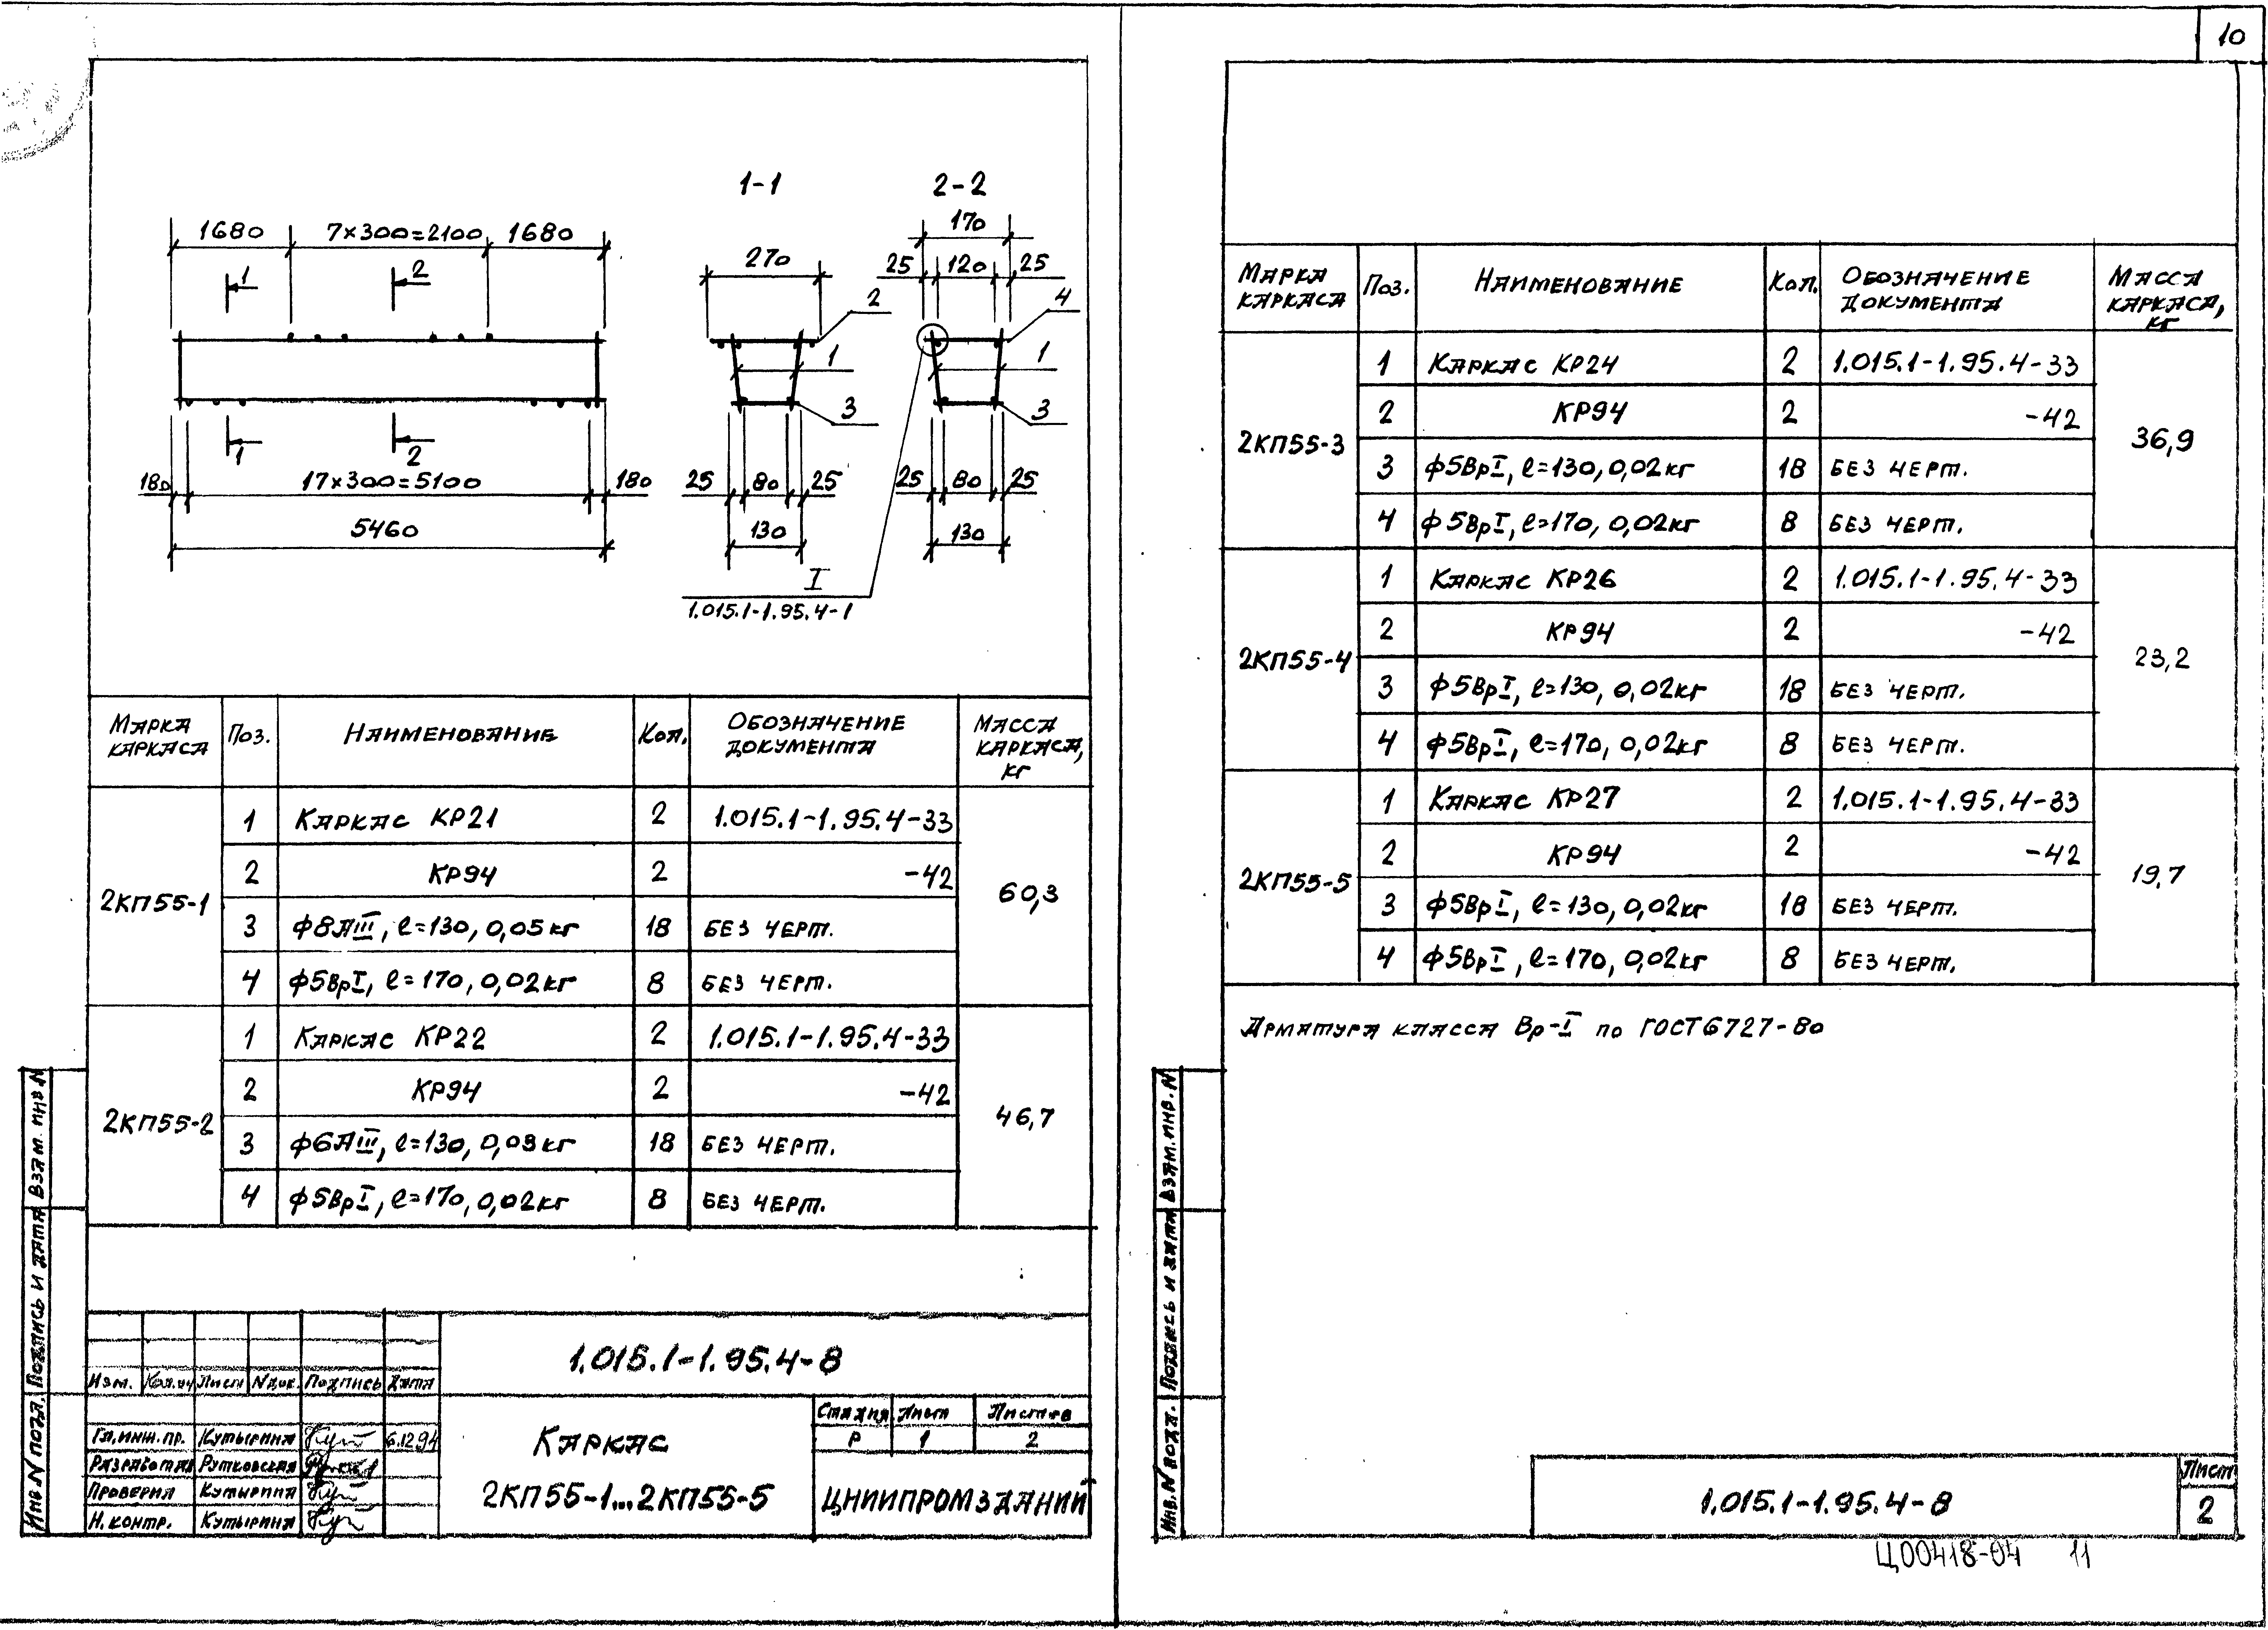 10
1-1
2-2
1680
7×300=2100
1680
270
170
25
120
25
1
2
2
4
1
1
3
3
1
2
180
17×300=5100
180
25
80
25
25
80
25
5460
130
130
I
1.015.1-1.95.4-1
Марка каркаса
Поз.
Наименование
Кол.
Обозначение документа
Масса каркаса, кг
2КП55-1
1 Каркас КР21 2 1.015.1-1.95.4-33
2 КР94 2 -42
3 ф8АIII, ℓ=130, 0,05кг 18 без черт.
4 ф5ВрI, ℓ=170, 0,02кг 8 без черт.
60,3
2КП55-2
1 Каркас КР22 2 1.015.1-1.95.4-33
2 КР94 2 -42
3 ф6АIII, ℓ=130, 0,03кг 18 без черт.
4 ф5ВрI, ℓ=170, 0,02кг 8 без черт.
46,7
1.015.1-1.95.4-8
Изм. Кол.уч Лист Nдок. Подпись Дата
Гл.инж.пр. Кутырина 6.12.94
Разработал Рутковская
Проверил Кутырина
Н.контр. Кутырина
Каркас
2КП55-1...2КП55-5
Стадия Лист Листов
Р 1 2
ЦНИИПРОМЗДАНИЙ
Инв N подл. Подпись и дата Взам. инв N
Марка каркаса
Поз.
Наименование
Кол.
Обозначение документа
Масса каркаса, кг
2КП55-3
1 Каркас КР24 2 1.015.1-1.95.4-33
2 КР94 2 -42
3 ф5ВрI, ℓ=130, 0,02кг 18 без черт.
4 ф5ВрI, ℓ=170, 0,02кг 8 без черт.
36,9
2КП55-4
1 Каркас КР26 2 1.015.1-1.95.4-33
2 КР94 2 -42
3 ф5ВрI, ℓ=130, 0,02кг 18 без черт.
4 ф5ВрI, ℓ=170, 0,02кг 8 без черт.
23,2
2КП55-5
1 Каркас КР27 2 1.015.1-1.95.4-33
2 КР94 2 -42
3 ф5ВрI, ℓ=130, 0,02кг 18 без черт.
4 ф5ВрI, ℓ=170, 0,02кг 8 без черт.
19,7
Арматура класса Вр-I по ГОСТ 6727-80
Инв. N подл. Подпись и дата Взам. инв. N
1.015.1-1.95.4-8
Лист
2
Ц00418-04 11